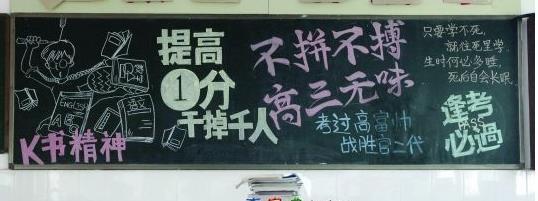 K书精神
ENGLISH
语文
提高
1分
干掉千人
不拼不搏
高三无味
考过高富帅
战胜官二代
只要学不死,
就往死里学.
生时何必多睡,
死后自会长眠.
逢考
必過